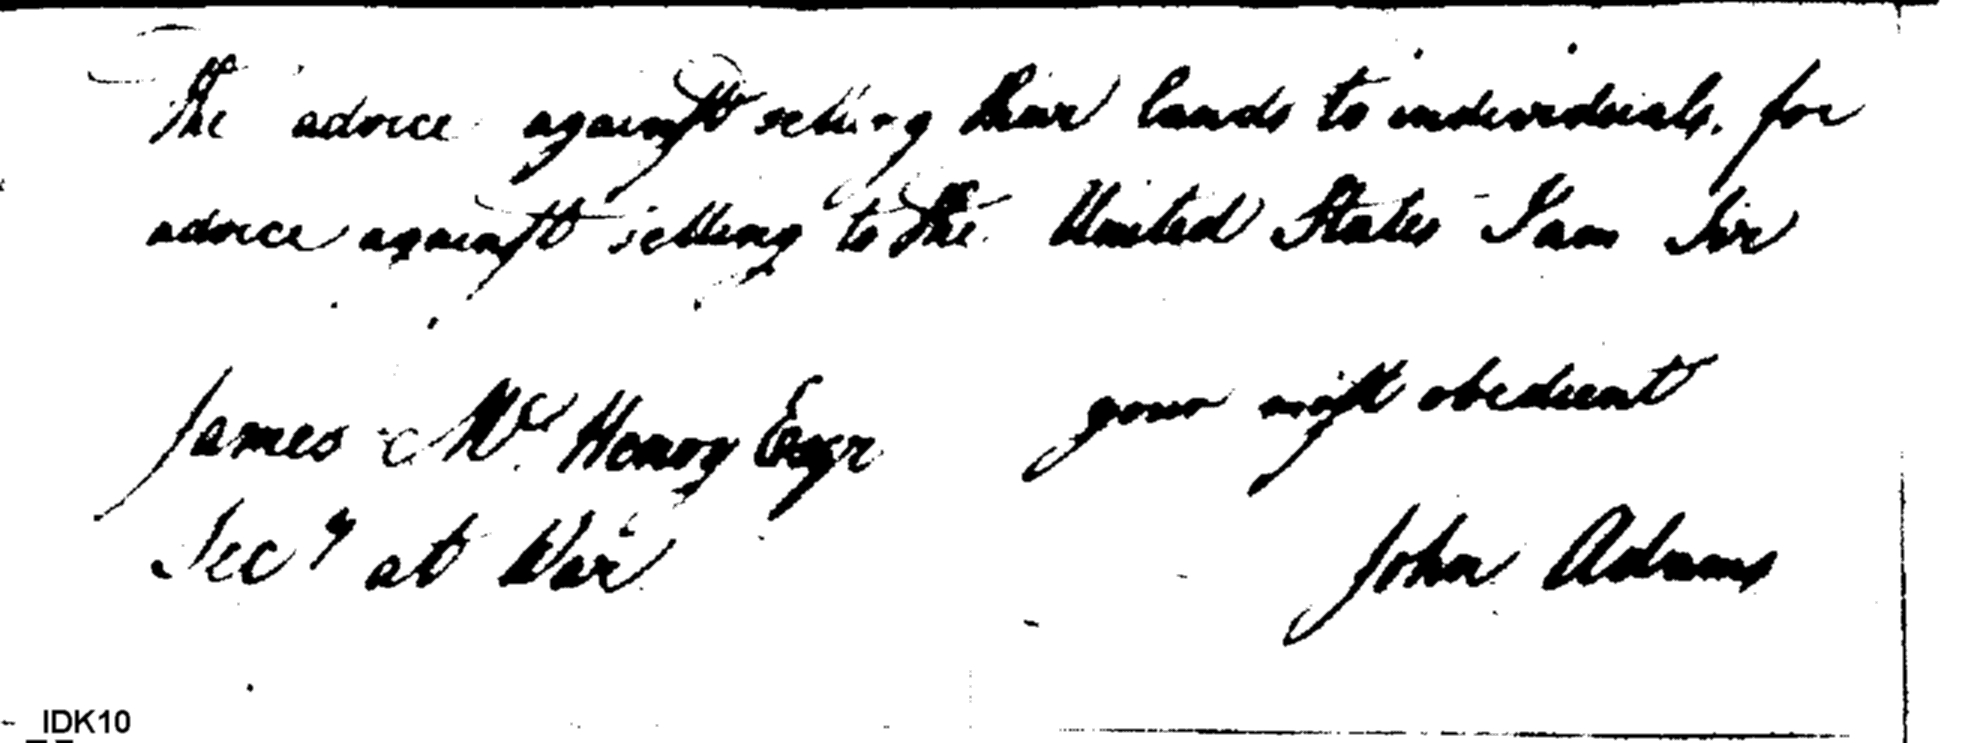 the advice against selling their lands to individuals, for
advice against selling to the United States I am Sir
your most obedient
James McHenry Esqr
Secy at War
John Adams
_IDK10